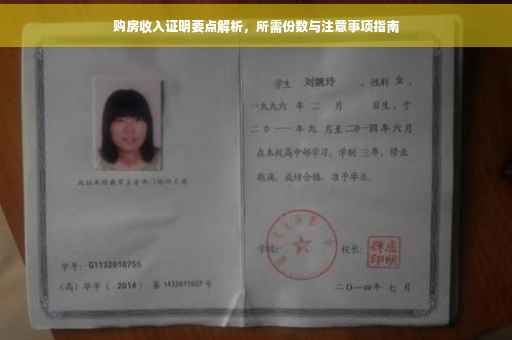 购房收入证明要点解析，所需份数与注意事项指南
学生 刘婉玲 ，性别 女 ，
一九九六 年 二 月 日生，于
二〇一一 年 九 月至二〇一四 年 六 月
在本校高中部学习，学制 三 年，修业
期满，成绩合格，准予毕业。
学校： 校长：
学号： G1132010755
（高）毕字（ 2014 ）第 1432011027 号
二〇一四年 七 月